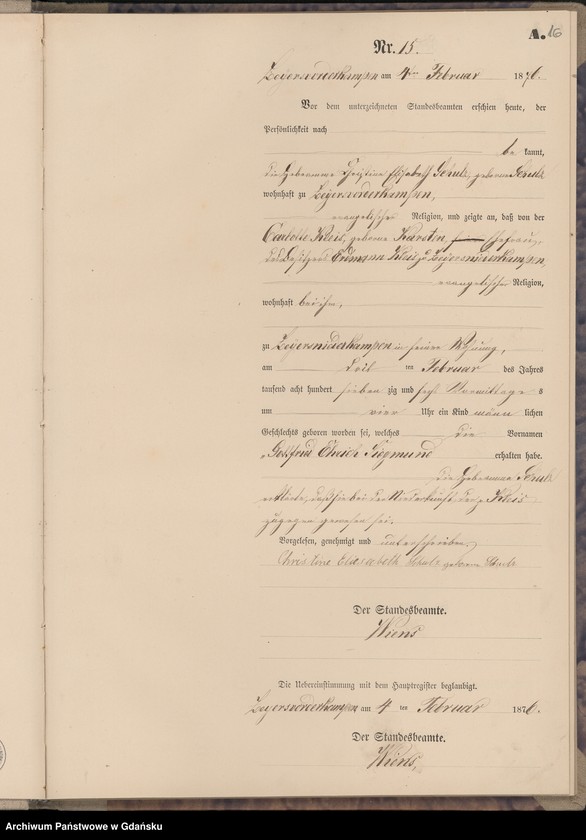 A. 16
Nr. 15.
Zeyersvorderkampen am 4ten Februar 1876.
Vor dem unterzeichneten Standesbeamten erschien heute, der
Persönlichkeit nach
be kannt,
die Hebamme Christine Elisabeth Schulz, geborene
wohnhaft zu Zeyersvorderkampen,
evangelischer Religion, und zeigte an, daß von der
Kleis, geborene Karsten, Ehefrau
des Besitzers Erdmann Kleis zu Zeyersniederkampen,
evangelischer Religion,
wohnhaft bei ihm,
zu Zeyersniederkampen in seiner Wohnung,
am ten Februar des Jahres
tausend acht hundert sieben zig und sechs Vormittags
um vier Uhr ein Kind männ lichen
Geschlechts geboren worden sei, welches die Vornamen
Gottfried Sigmund erhalten habe.
Die Hebamme Schulz
erklärte, daß sie bei der Niederkunft der Kleis
zugegen gewesen sei.
Vorgelesen, genehmigt und unterschrieben
Christine Elisabeth Schulz geborene
Der Standesbeamte.
Wiens
Die Uebereinstimmung mit dem Hauptregister beglaubigt.
Zeyersvorderkampen am 4 ten Februar 1876.
Der Standesbeamte.
Wiens.
Archiwum Państwowe w Gdańsku